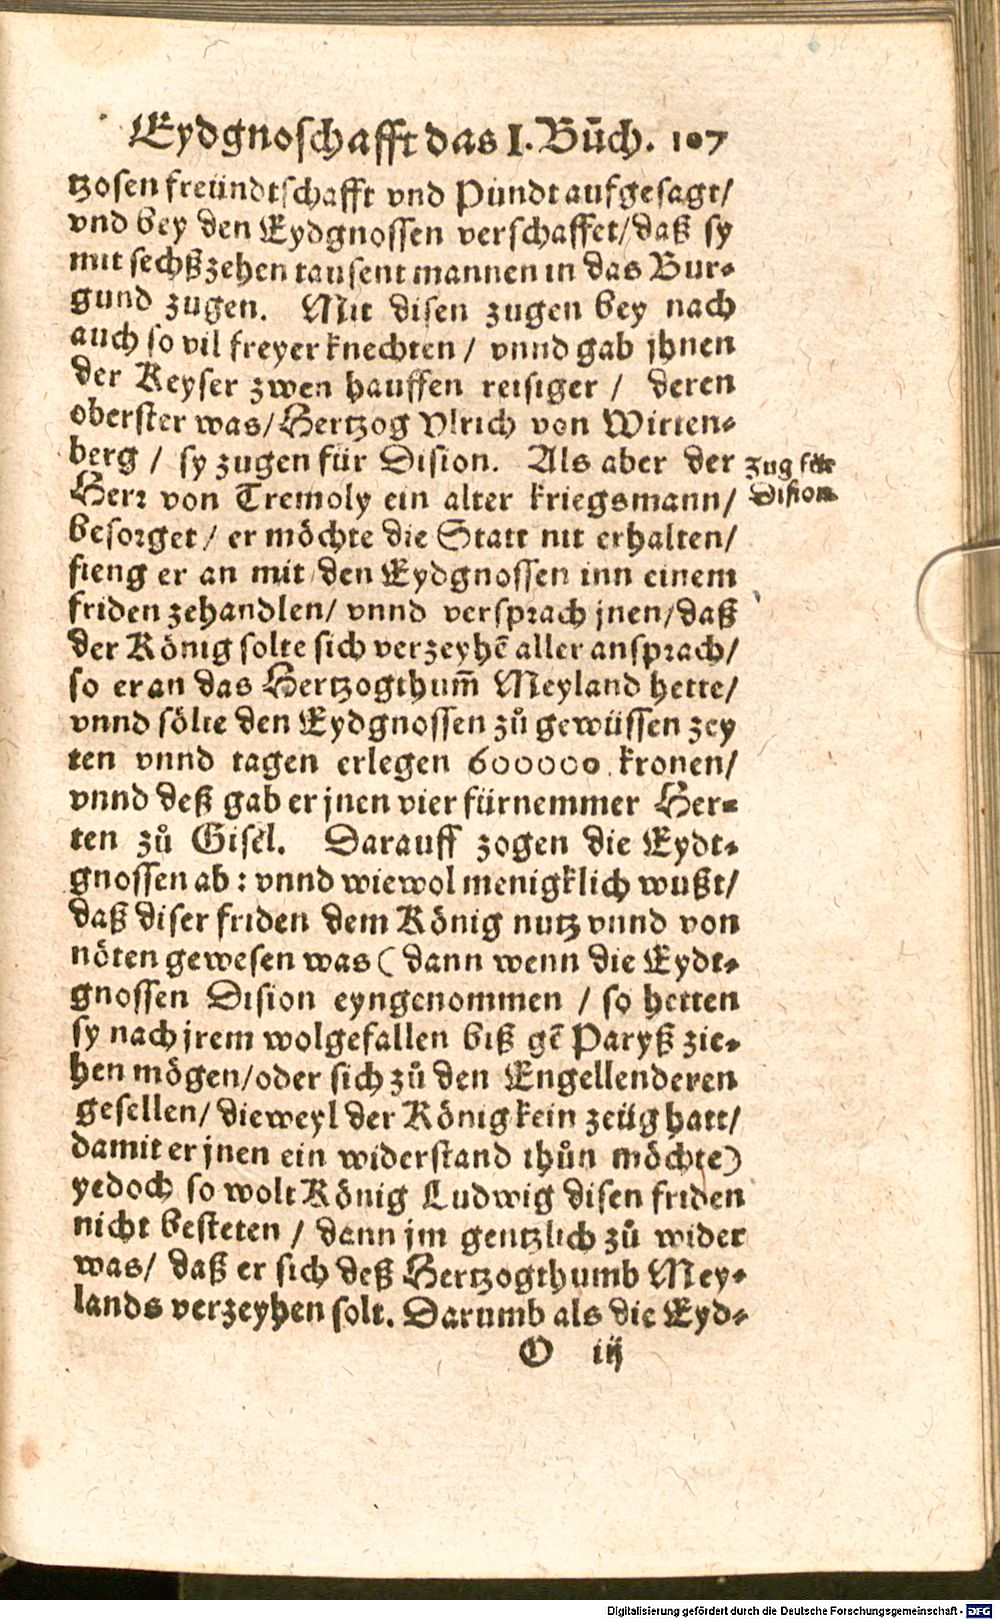 Eydgnoschafft das I. Bůch. 107
tzosen freündtschafft vnd Pündt aufgesagt/
vnd bey den Eydgnossen verschaffet/ daß sy
mit sechßzehen tausent mannen in das Bur-
gund zugen. Mit disen zugen bey nach
auch so vil freyer knechten / vnnd gab jhnen
der Keyser zwen hauffen reisiger / deren
oberster was/ Hertzog Vlrich von Wirten-
berg / sy zugen für Dision. Als aber der
Zug für
Dision.
Herr von Tremoly ein alter kriegsmann/
besorget / er möchte die Statt nit erhalten/
fieng er an mit den Eydgnossen inn einem
friden zehandlen/ vnnd versprach jnen/ daß
der König solte sich verzeyhē aller ansprach/
so er an das Hertzogthum̄ Meyland hette/
vnnd sölte den Eydgnossen zů gewüssen zey
ten vnnd tagen erlegen 600000. kronen/
vnnd deß gab er jnen vier fürnemmer Her-
ren zů Gisel. Darauff zogen die Eydt-
gnossen ab : vnnd wiewol menigklich wußt/
daß diser friden dem König nutz vnnd von
nöten gewesen was ( dann wenn die Eydt-
gnossen Dision eyngenommen / so hetten
sy nach jrem wolgefallen biß gē Paryß zie-
hen mögen/ oder sich zů den Engellenderen
gesellen/ dieweyl der König kein zeüg hatt/
damit er jnen ein widerstand thůn möchte)
yedoch so wolt König Ludwig disen friden
nicht besteten / dann jm gentzlich zů wider
was/ daß er sich deß Hertzogthumb Mey-
lands verzeyhen solt. Darumb als die Eyd-
O iij
Digitalisierung gefördert durch die Deutsche Forschungsgemeinschaft - DFG